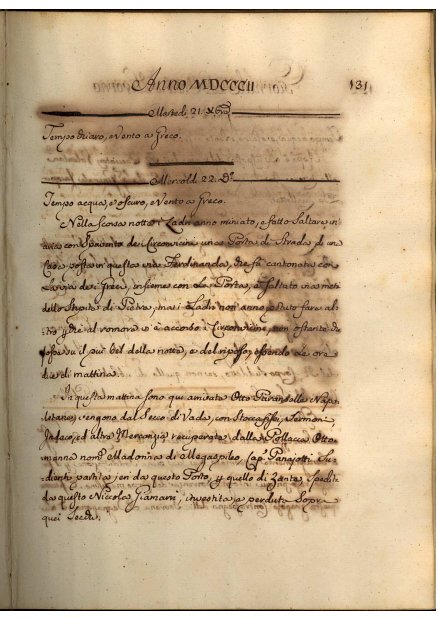 Anno MDCCCII 131
Martedì 21. Xbre
Tempo chiaro, e Vento a Greco.
Mercoldì 22. Do
Tempo acqua, e oscuro, e Vento a Greco.
Nella scorsa notte i Ladri anno minato, e fatto saltare in
aria con Spavento dei Circonvicini una Porta di Strada di una
Casa posta in questa via Ferdinanda, che fà cantonata con
la via dei Greci, insieme con La Porta, è saltato via metà
dello Stipite di Pietra, ma i Ladri non anno potuto fare al-
tro perchè al romore vi è accorso i Circonvicini, non ostante che
fosse su il più bel della notte, e del riposo, essendo le ore
di mattina.
In questa mattina sono qui arrivate Otto Paranzelle Napo-
litane, vengono dal Secco di Vada, con Stoccafissi, Sermoni
Indaco, ed altra Mercanzia recuperata dalla Pollacca Otto-
manna nomta Madonna di Megaspileo, Capo Panajotti
partita, da questo Porto, p quello di Zante Spedita
da questo Niccola Giamari, investita, e perduta Sopra
quei Secchi.